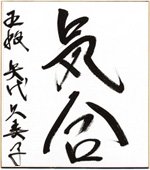 気合
五段 矢代久美子